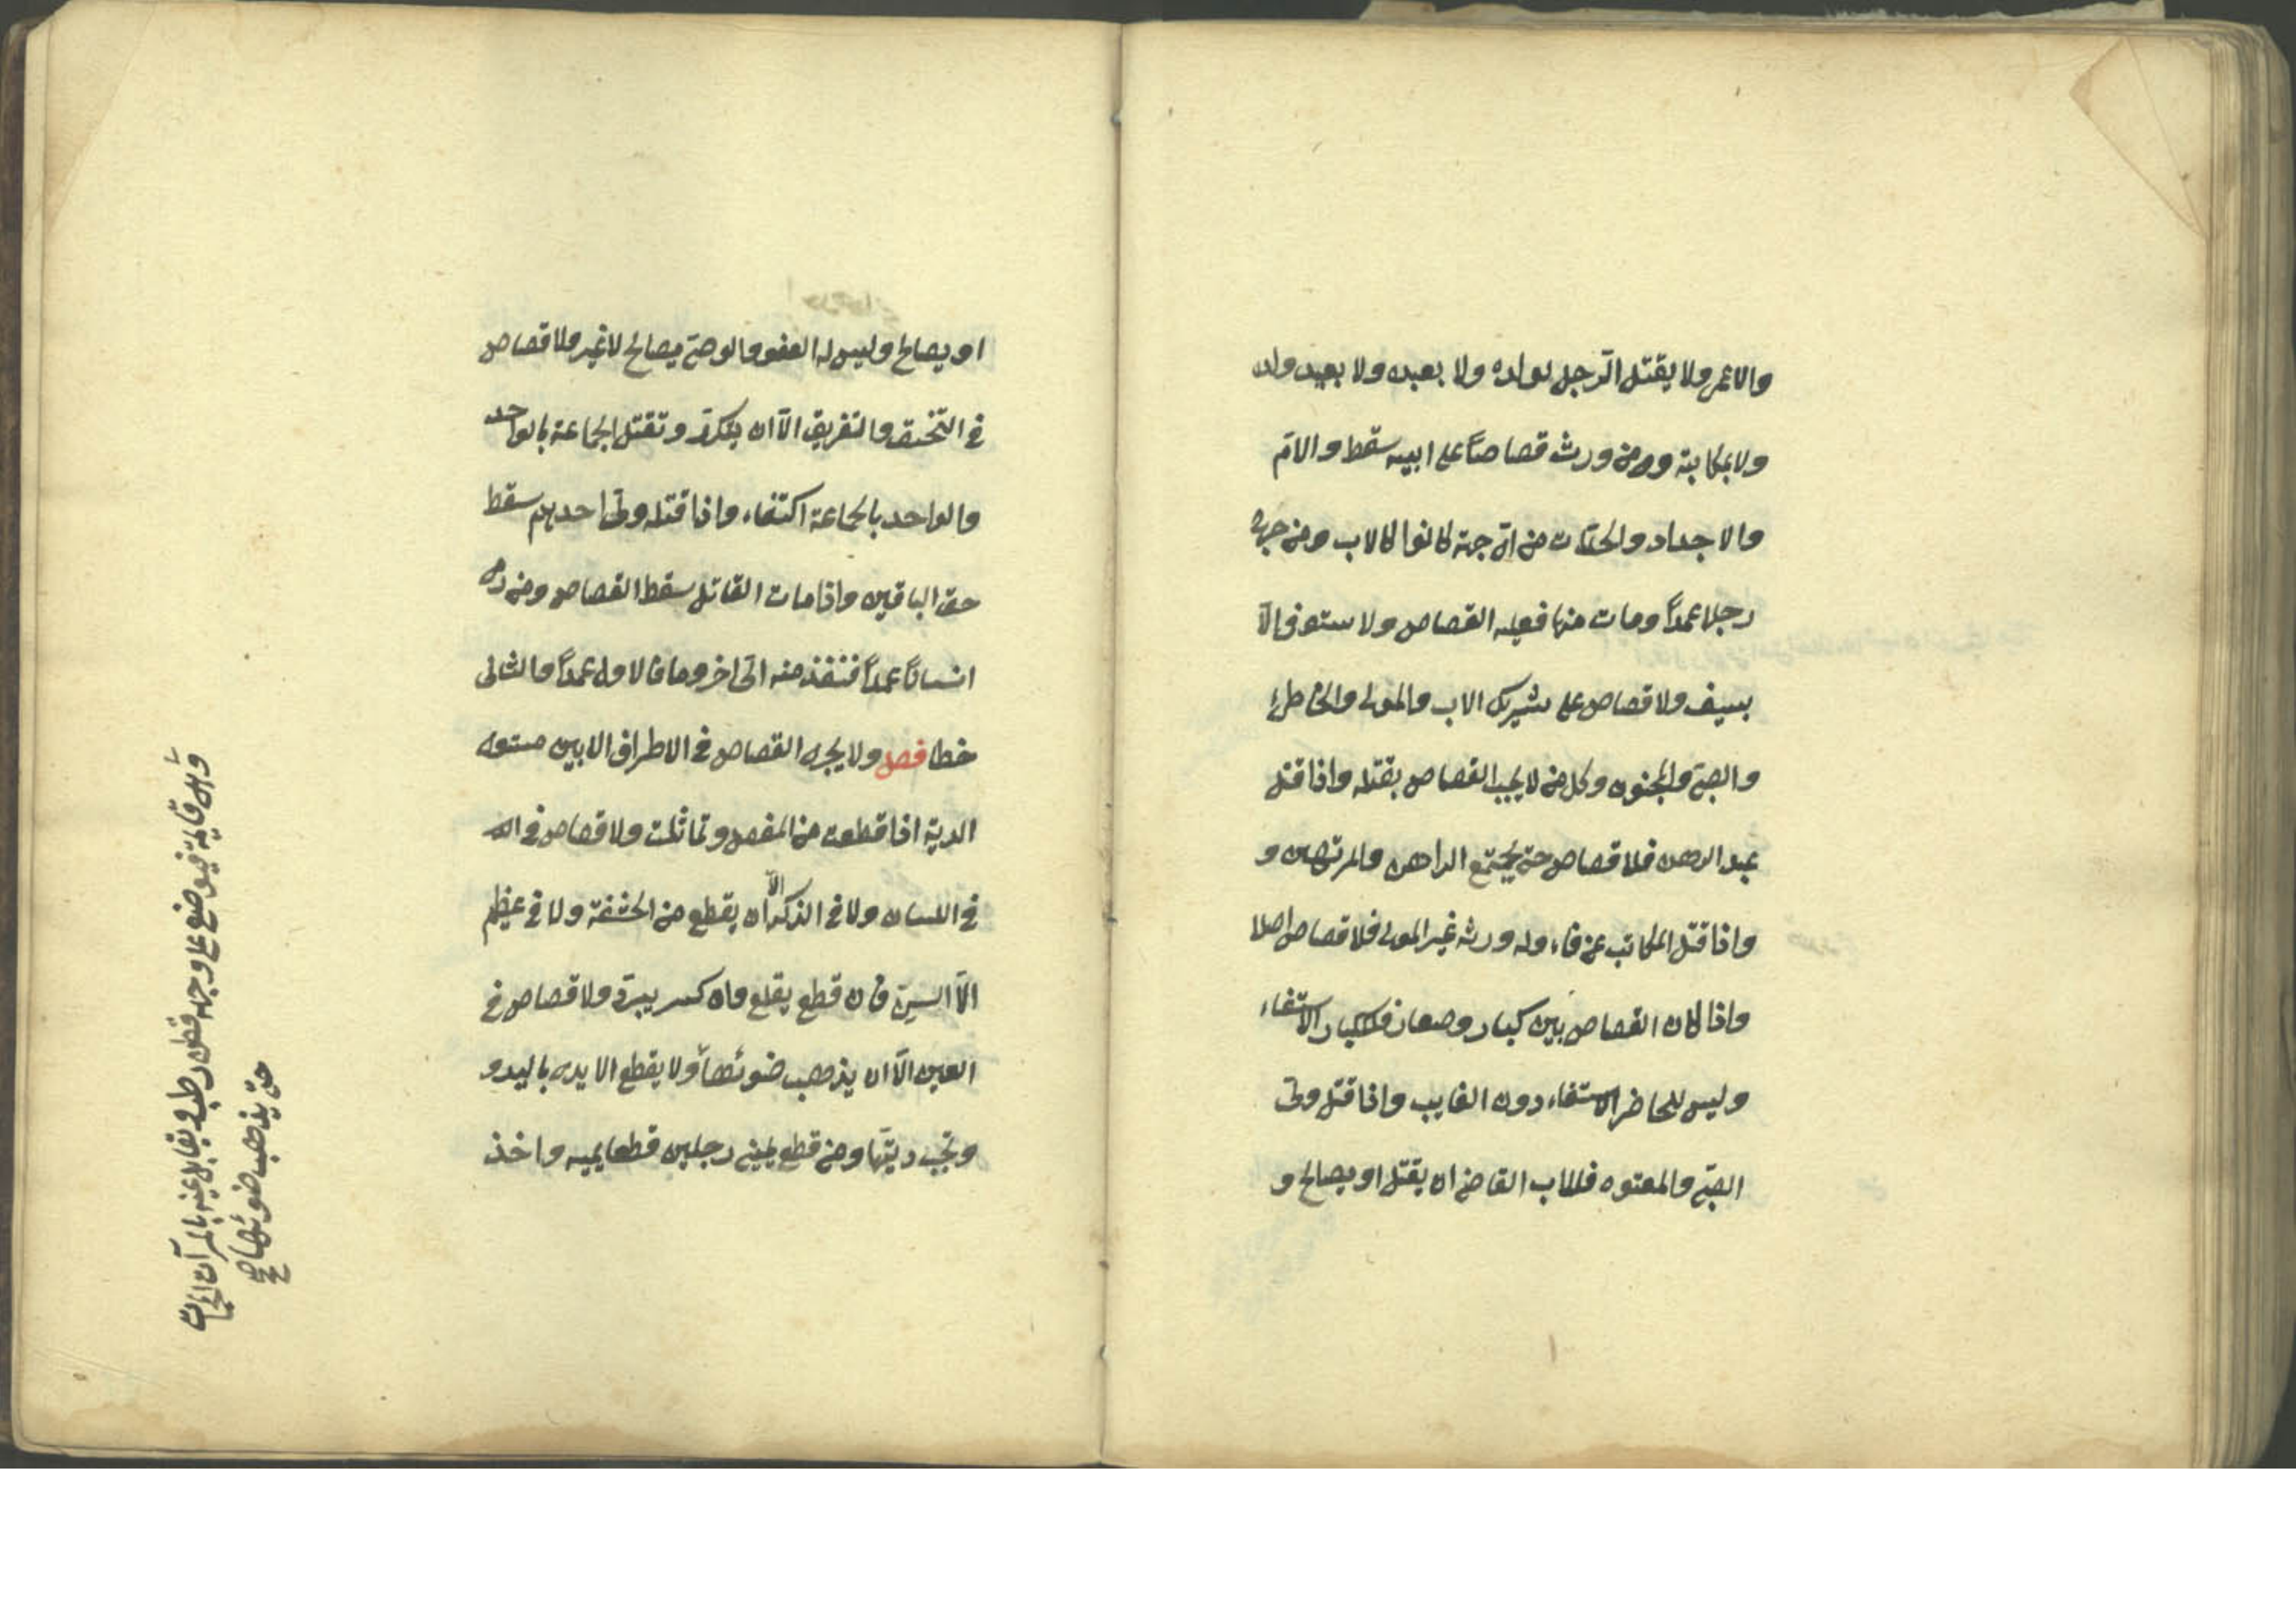 والاعمى ولا يقتل الرّجل لولده ولا بعبده ولا بعبد ولده
ولا بمكاتبه ومن ورث قصاصاً على ابيه سقط والامّ
والاجداد والجدّات من اىّ جهة كانوا كالاب ومن جرح
رجلا عمداً ومات منها فعليه القصاص ولا يستوفى الّا
بسيف ولا قصاص على شريك الاب والمولى والخاطئ
والصبىّ والمجنون وكل من لا يجب القصاص بقتله واذا قتل
عبد الرهن فلا قصاص حتى يجتمع الراهن والمرتهن و
واذا قتل المكاتب عن وفاء وله ورثه غير المولى فلا قصاص اصلا
واذا كان القصاص بين كبار وصغار فللكبار الاستيفاء
وليس للحاضر الاستيفاء دون الغايب واذا قتل ولىّ
الصبىّ والمعتوه فللاب القاضى ان يقتل او يصالح و
او يصالح وليس له العفو والوصىّ يصالح لا غير ولا قصاص
فى التّخنيق والتغريق الّا ان يتكرّر وتقتل الجماعة بالواحد
والواحد بالجماعة اكتفاء واذا قتله ولىّ احدهم سقط
حق الباقين واذا مات القاتل سقط القصاص ومن رمى
انساناً عمداً فنفذ منه الى اخر وماتا فالاول عمداً والثانى
خطا فصل ولا يجرى القصاص فى الاطراف الا بين مستوى
الدية اذا قطعت من المفصل وتماثلت ولا قصاص فى
فى اللسان ولا فى الذكر الّا ان يقطع من الحشفة ولا فى عظم
الّا السنّ فان قطع يقلع وان كسر يبرد ولا قصاص فى
العين الّا ان يذهب ضوئها ولا يقطع الايدى باليد و
وتجب ديتها ومن قطع يمينى رجلين قطعا يمينه واخذ
وهى قايمة فيوضع على وجهه قطن رطب ويقابل عينه بالمرآت المحمات
حتى يذهب ضوئها صح